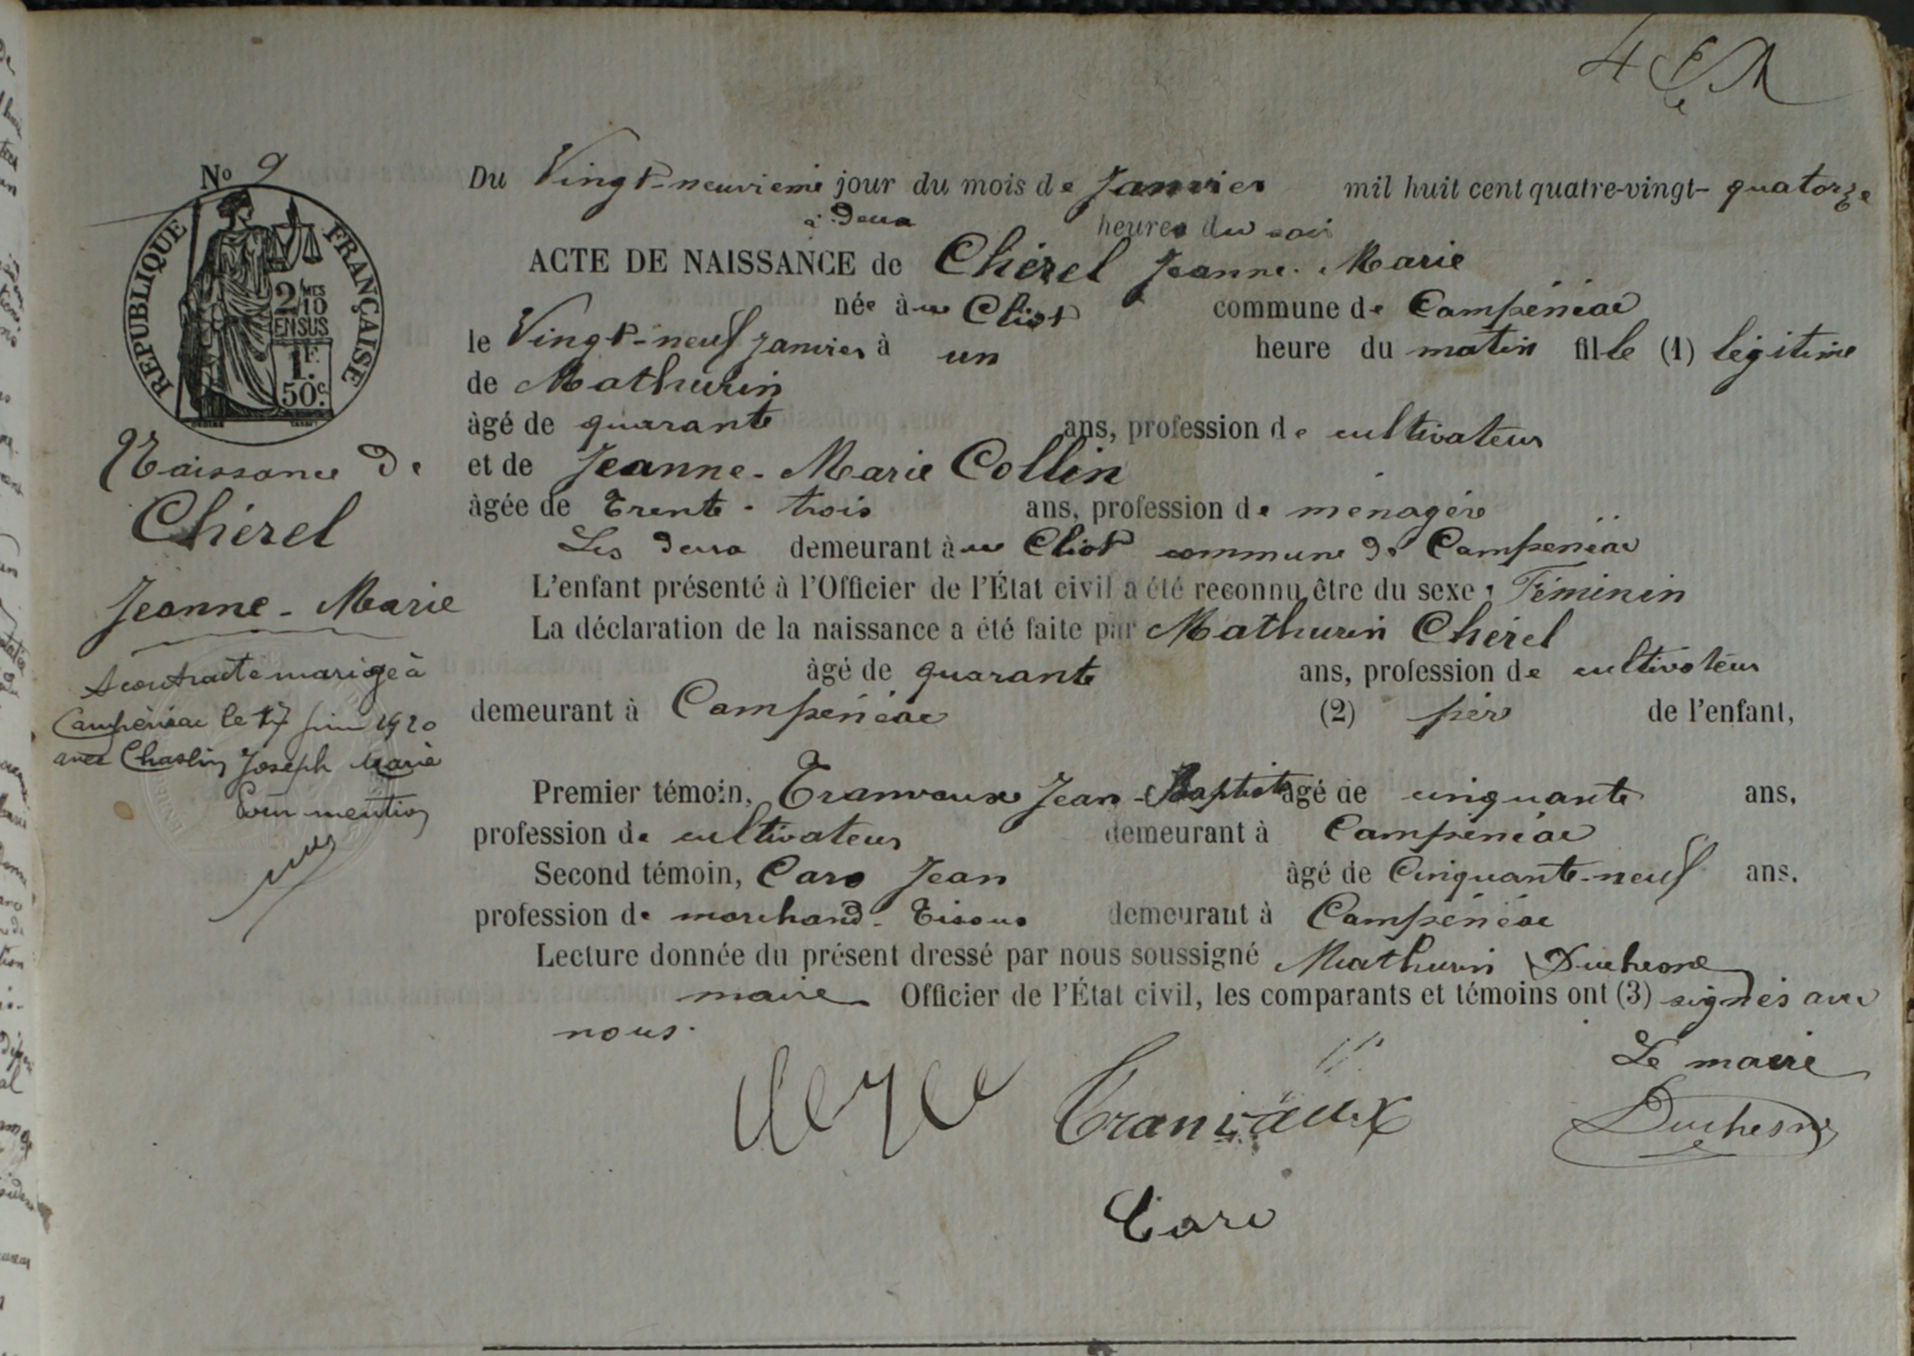 4
No 9
RÉPUBLIQUE FRANÇAISE
2/10MES
EN SUS
1F.
50c.
Naissance de
Chérel
Jeanne-Marie
A contracté mariage à
Campénéac le 17 juin 1920
avec Chaslin Joseph Marie
Pour mention
Du Vingt-neuvième jour du mois de Janvier mil huit cent quatre-vingt-quatorze
à deux heures du soir
ACTE DE NAISSANCE de Chérel Jeanne-Marie
née à au Cliot commune de Campénéac
le Vingt-neuf janvier à un heure du matin fille (1) légitime
de Mathurin
âgé de quarante ans, profession de cultivateur
et de Jeanne-Marie Collin
âgée de Trente-trois ans, profession de ménagère
Les deux demeurant à au Cliot commune de Campénéac
L'enfant présenté à l'Officier de l'État civil a été reconnu être du sexe : Féminin
La déclaration de la naissance a été faite par Mathurin Chérel
âgé de quarante ans, profession de cultivateur
demeurant à Campénéac (2) père de l'enfant,
Premier témoin, Tranvaux Jean-Baptiste âgé de cinquante ans,
profession de cultivateur demeurant à Campénéac
Second témoin, Caro Jean âgé de Cinquante-neuf ans.
profession de marchand-Tissus demeurant à Campénéac
Lecture donnée du présent dressé par nous soussigné Mathurin Duchesne
maire Officier de l'État civil, les comparants et témoins ont (3) signés avec
nous.
Le maire
Tranvaux
Duchesne
Caro